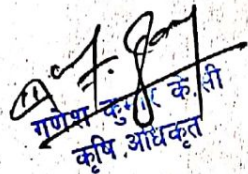 गणेश कुमार के.सी
कृषि अधिकृत